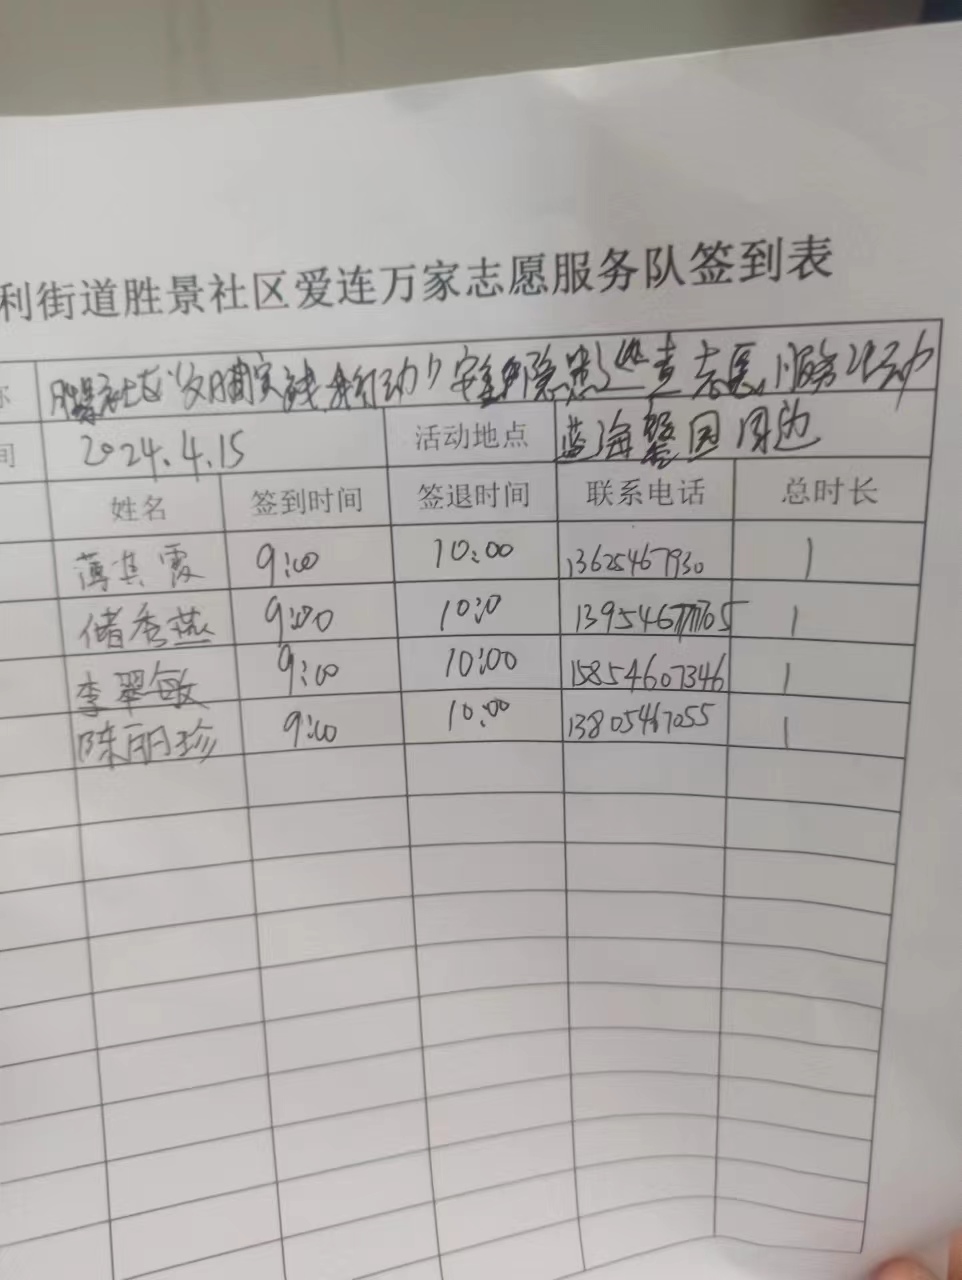 利街道胜景社区爱连万家志愿服务队签到表
称 胜景社区“文明实践我行动”安全隐患巡查志愿服务活动
间 2024.4.15 活动地点 蓝海馨园周边
姓名 签到时间 签退时间 联系电话 总时长
薄其霞 9:00 10:00 13625467930 1
储秀燕 9:00 10:0 1
李翠敏 9:00 10:00 15854607346 1
陈丽珍 9:00 10:00 13805467055 1